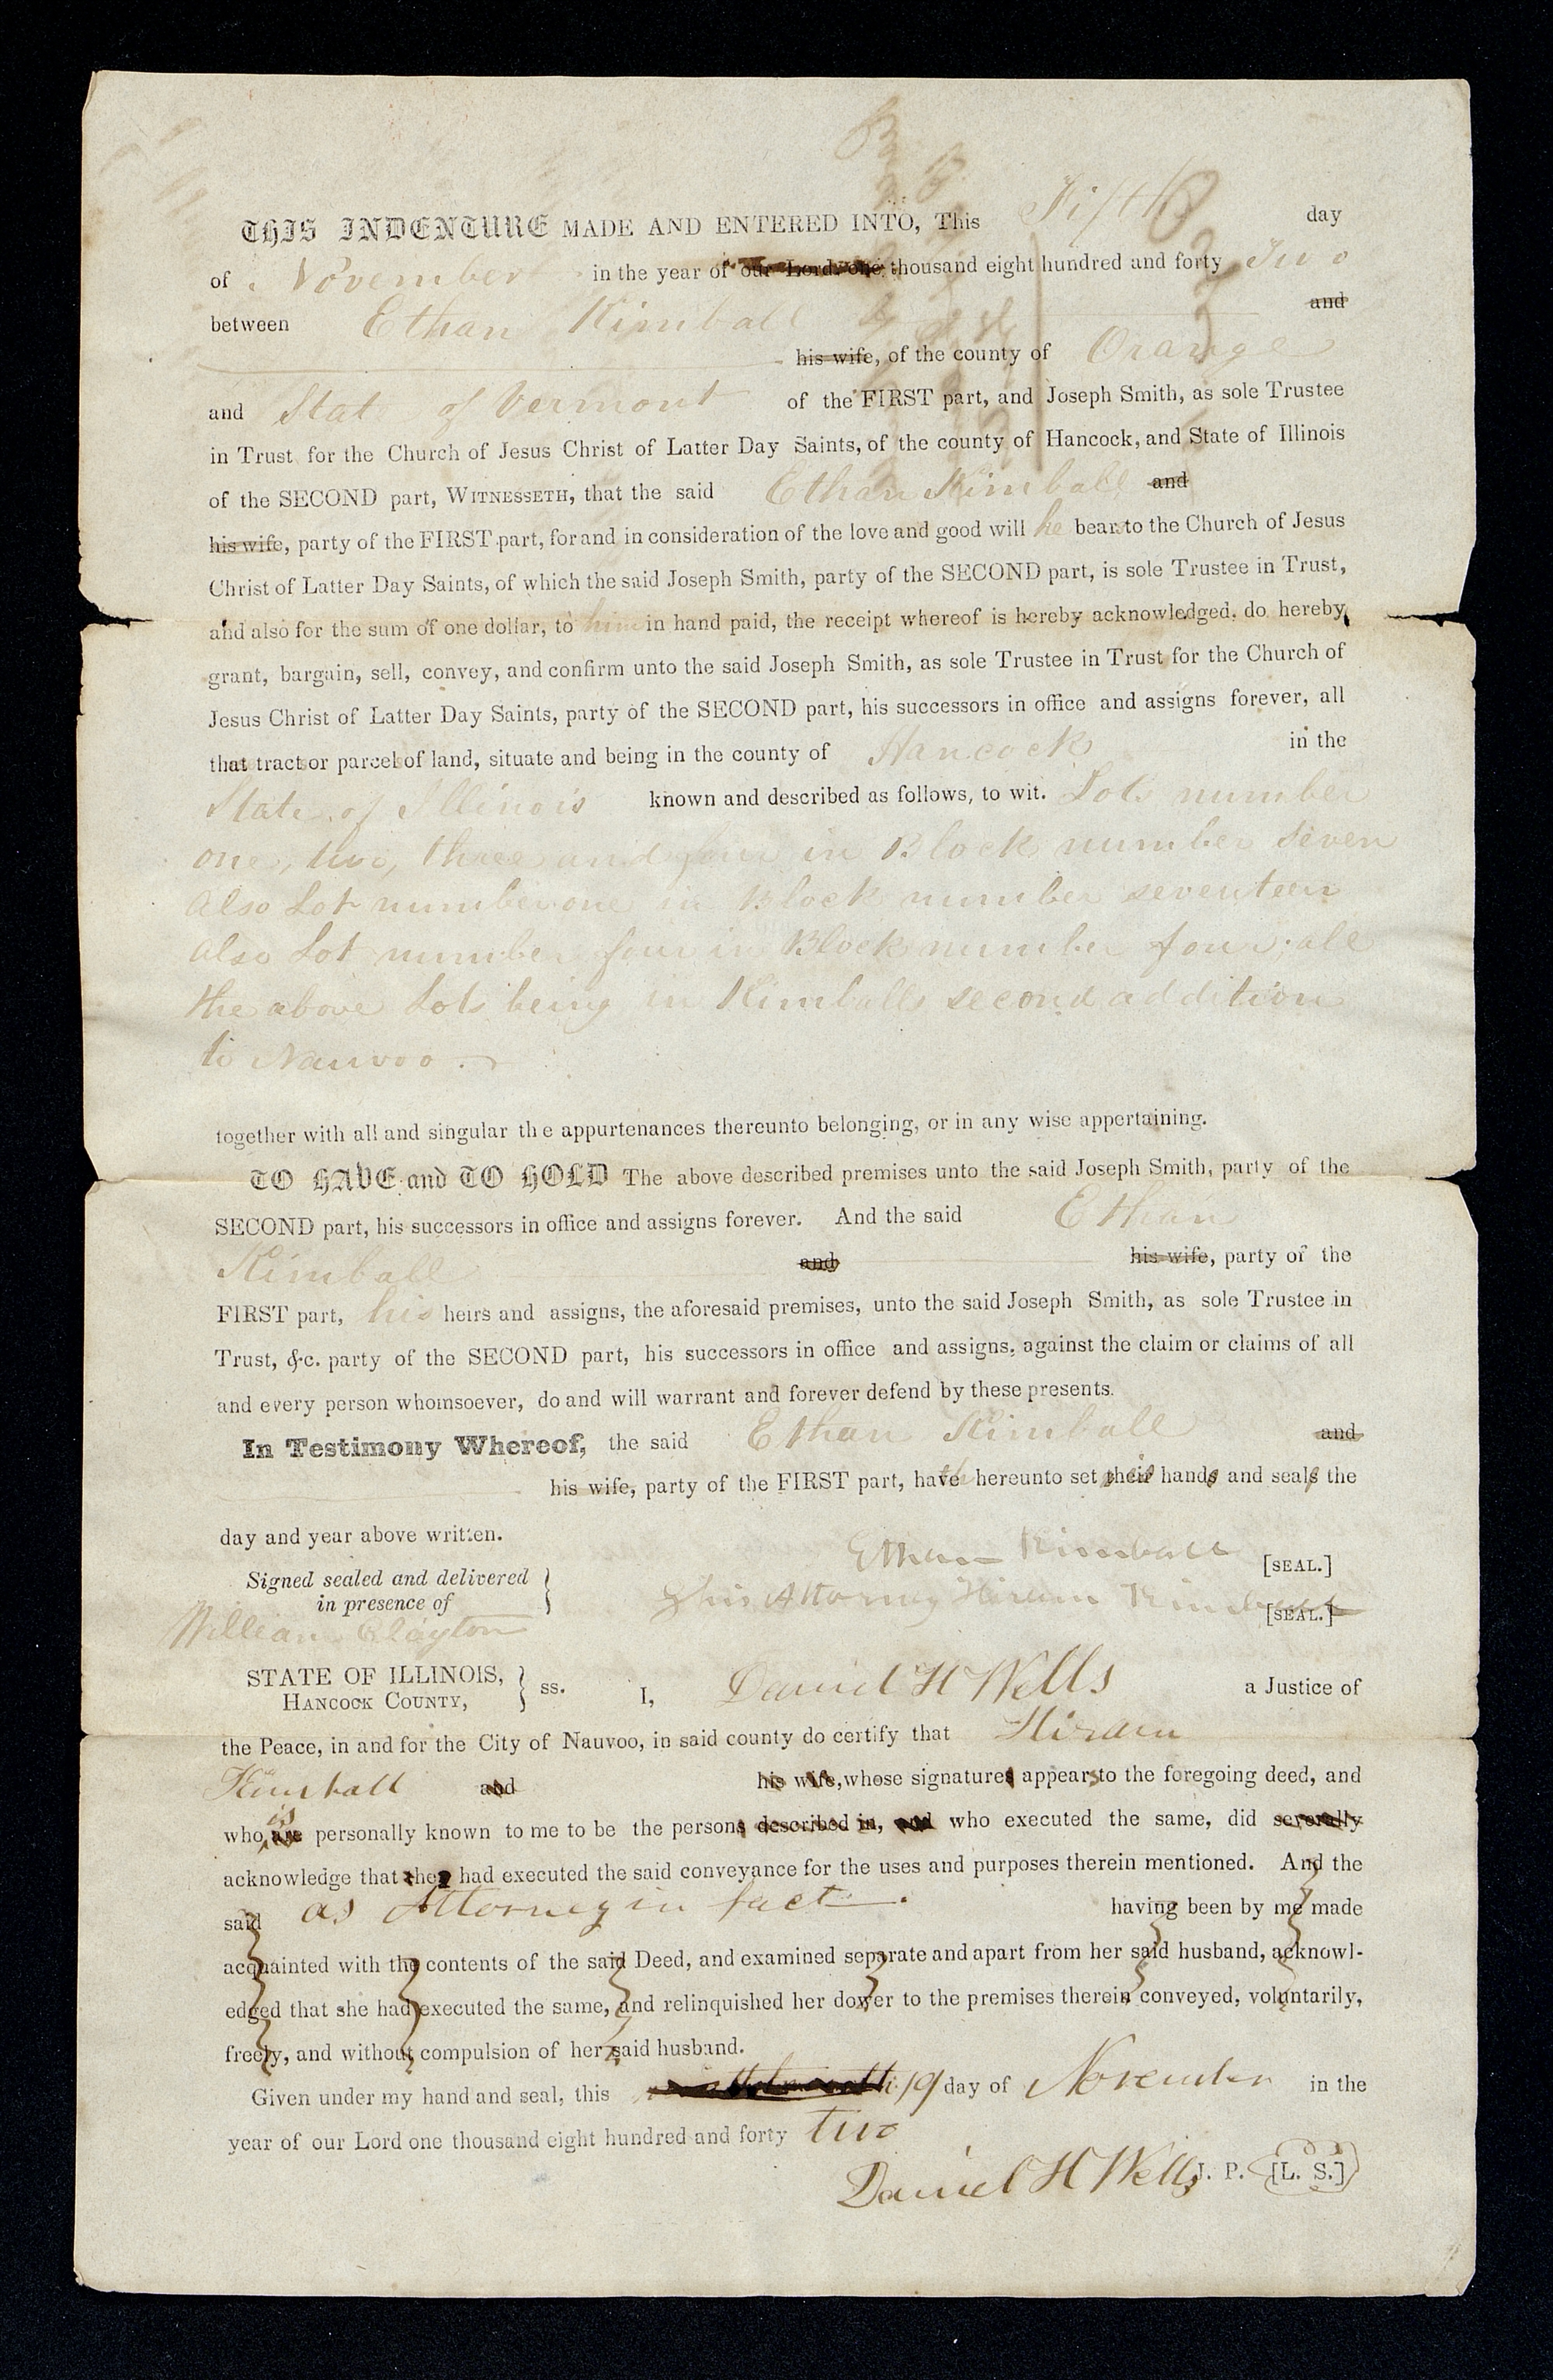 THIS INDENTURE MADE AND ENTERED INTO, This Fifth day
of November in the year of our Lord one thousand eight hundred and forty Two
between Ethan Kimball and
his wife, of the county of Orange
and State of Vermont of the FIRST part, and Joseph Smith, as sole Trustee
in Trust for the Church of Jesus Christ of Latter Day Saints, of the county of Hancock, and State of Illinois
of the SECOND part, WITNESSETH, that the said Ethan Kimball and
his wife, party of the FIRST part, for and in consideration of the love and good will he bears to the Church of Jesus
Christ of Latter Day Saints, of which the said Joseph Smith, party of the SECOND part, is sole Trustee in Trust,
and also for the sum of one dollar, to him in hand paid, the receipt whereof is hereby acknowledged, do hereby
grant, bargain, sell, convey, and confirm unto the said Joseph Smith, as sole Trustee in Trust for the Church of
Jesus Christ of Latter Day Saints, party of the SECOND part, his successors in office and assigns forever, all
that tract or parcel of land, situate and being in the county of Hancock in the
State of Illinois known and described as follows, to wit. Lots number
one, two, three and four in Block number seven
also Lot number one in Block number seventeen
also Lot number four in Block number four; all
the above Lots being in Kimballs second addition
to Nauvoo.
together with all and singular the appurtenances thereunto belonging, or in any wise appertaining.
TO HAVE and TO HOLD The above described premises unto the said Joseph Smith, party of the
SECOND part, his successors in office and assigns forever. And the said Ethan
Kimball and his wife, party of the
FIRST part, his heirs and assigns, the aforesaid premises, unto the said Joseph Smith, as sole Trustee in
Trust, &c. party of the SECOND part, his successors in office and assigns, against the claim or claims of all
and every person whomsoever, do and will warrant and forever defend by these presents.
In Testimony Whereof, the said Ethan Kimball and
his wife, party of the FIRST part, hath hereunto set his hands and seals the
day and year above written.
Ethan Kimball [SEAL.]
Signed sealed and delivered
in presence of
his Attorney Hiram Kimball [SEAL.]
William Clayton
STATE OF ILLINOIS,
HANCOCK COUNTY, } ss. I, Daniel H Wells a Justice of
the Peace, in and for the City of Nauvoo, in said county do certify that Hiram
Kimball and his wife, whose signatures appears to the foregoing deed, and
who is are personally known to me to be the persons described in, and who executed the same, did severally
acknowledge that they had executed the said conveyance for the uses and purposes therein mentioned. And the
said as Attorney in fact. having been by me made
acquainted with the contents of the said Deed, and examined separate and apart from her said husband, acknowl-
edged that she had executed the same, and relinquished her dower to the premises therein conveyed, voluntarily,
freely, and without compulsion of her said husband.
Given under my hand and seal, this 19 day of November in the
year of our Lord one thousand eight hundred and forty two
Daniel H Wells J. P. [L. S.]